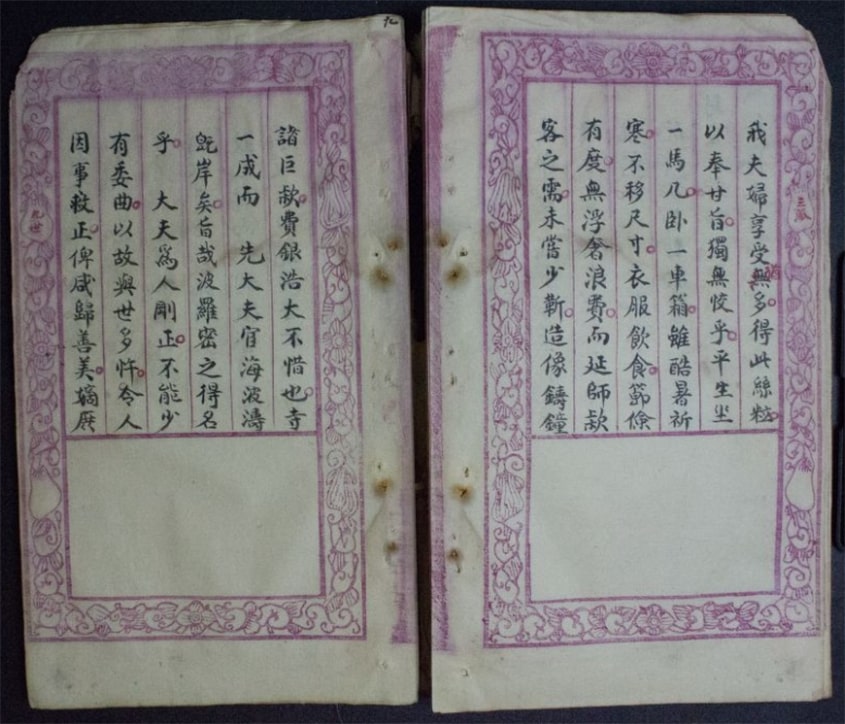 我夫婦享受無多得此絲粒
以奉甘旨獨無恔乎平生坐
一馬几臥一車箱雖酷暑祈
寒不移尺寸衣服飲食節儉
有度無浮奢浪費而延師欵
客之需未嘗少靳造像鑄鐘
諸巨欵費銀浩大不惜也寺
一成而 先大夫宦海波濤
旣岸矣旨哉波羅密之得名
乎 大夫爲人剛正不能少
有委曲以故與世多忤令人
因事救正俾咸歸善美嫡
九世